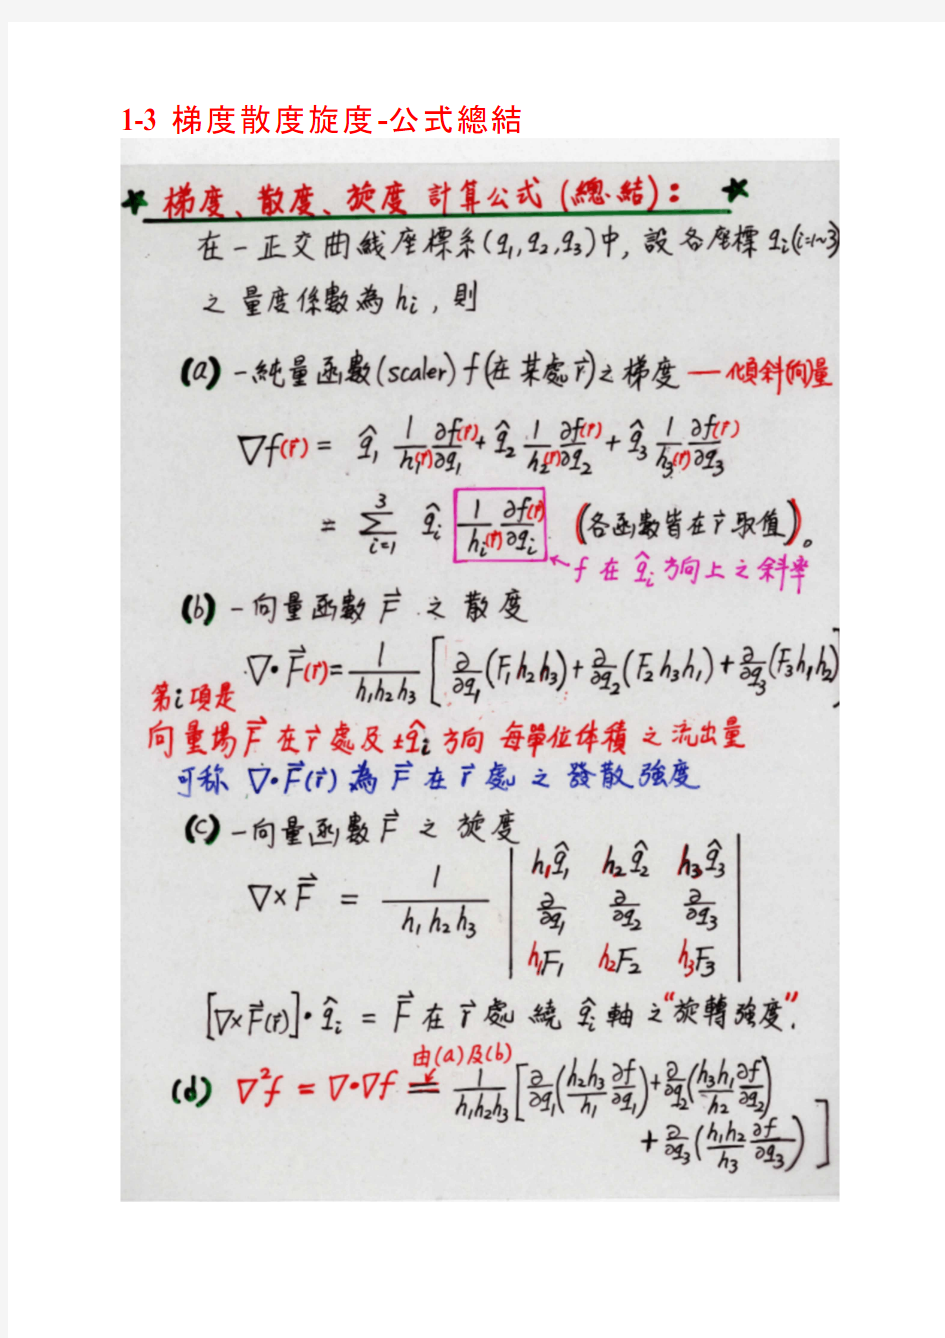 1-3 梯度散度旋度-公式總結
★ 梯度、散度、旋度 計算公式(總結): ★
在一正交曲線座標系(q₁,q₂,q₃)中, 設各座標 qᵢ(i=1~3)
之量度係數為 hᵢ, 則
(a) 一純量函數(scaler) f(在某處r⃗)之梯度 — 傾斜(向)量
∇f(r⃗) = q̂₁ 1/h₁(r⃗) ∂f(r⃗)/∂q₁ + q̂₂ 1/h₂(r⃗) ∂f(r⃗)/∂q₂ + q̂₃ 1/h₃(r⃗) ∂f(r⃗)/∂q₃
= Σ_{i=1}^{3} q̂ᵢ 1/hᵢ(r⃗) ∂f(r⃗)/∂qᵢ (各函數皆在r⃗取值)。
← f 在 q̂ᵢ 方向上之斜率
(b) 一向量函數 F⃗ 之散度
∇•F⃗(r⃗) = 1/(h₁h₂h₃) [∂/∂q₁(F₁h₂h₃) + ∂/∂q₂(F₂h₃h₁) + ∂/∂q₃(F₃h₁h₂)]
第i項是
向量場F⃗在r⃗處及±q̂ᵢ方向 每單位体積之流出量
可称 ∇•F⃗(r⃗) 為 F⃗ 在 r⃗ 處之發散強度
(c) 一向量函數 F⃗ 之旋度
∇×F⃗ = 1/(h₁h₂h₃) | h₁q̂₁ h₂q̂₂ h₃q̂₃ |
| ∂/∂q₁ ∂/∂q₂ ∂/∂q₃ |
| h₁F₁ h₂F₂ h₃F₃ |
[∇×F⃗(r⃗)]•q̂ᵢ = F⃗ 在 r⃗ 處繞 q̂ᵢ 軸之“旋轉強度”.
由(a)及(b)
(d) ∇²f = ∇•∇f = 1/(h₁h₂h₃) [∂/∂q₁(h₂h₃/h₁ ∂f/∂q₁) + ∂/∂q₂(h₃h₁/h₂ ∂f/∂q₂)
+ ∂/∂q₃(h₁h₂/h₃ ∂f/∂q₃)]